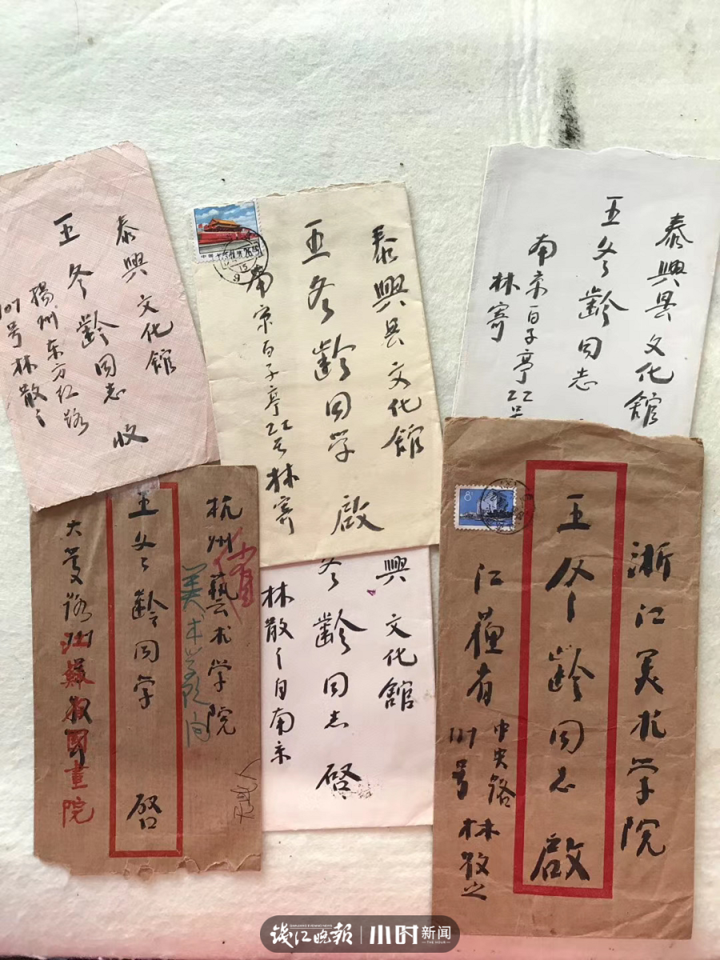 泰興文化館
王冬齡同志 收
揚州东方红路
107号林散々
泰興县文化館
王冬齡同学 啟
南京百子亭22号林寄
泰興县文化館
王冬齡同志
南京百子亭22号
林寄
杭州藝术学院
王冬齡同学 啓
江蘇省國畫院
興文化館
冬齡同志 啓
林散々自南京
浙江美术学院
王冬齡同志 啟
江蘇省
中央路
117号 林散之
8
钱江晚报 小时新闻